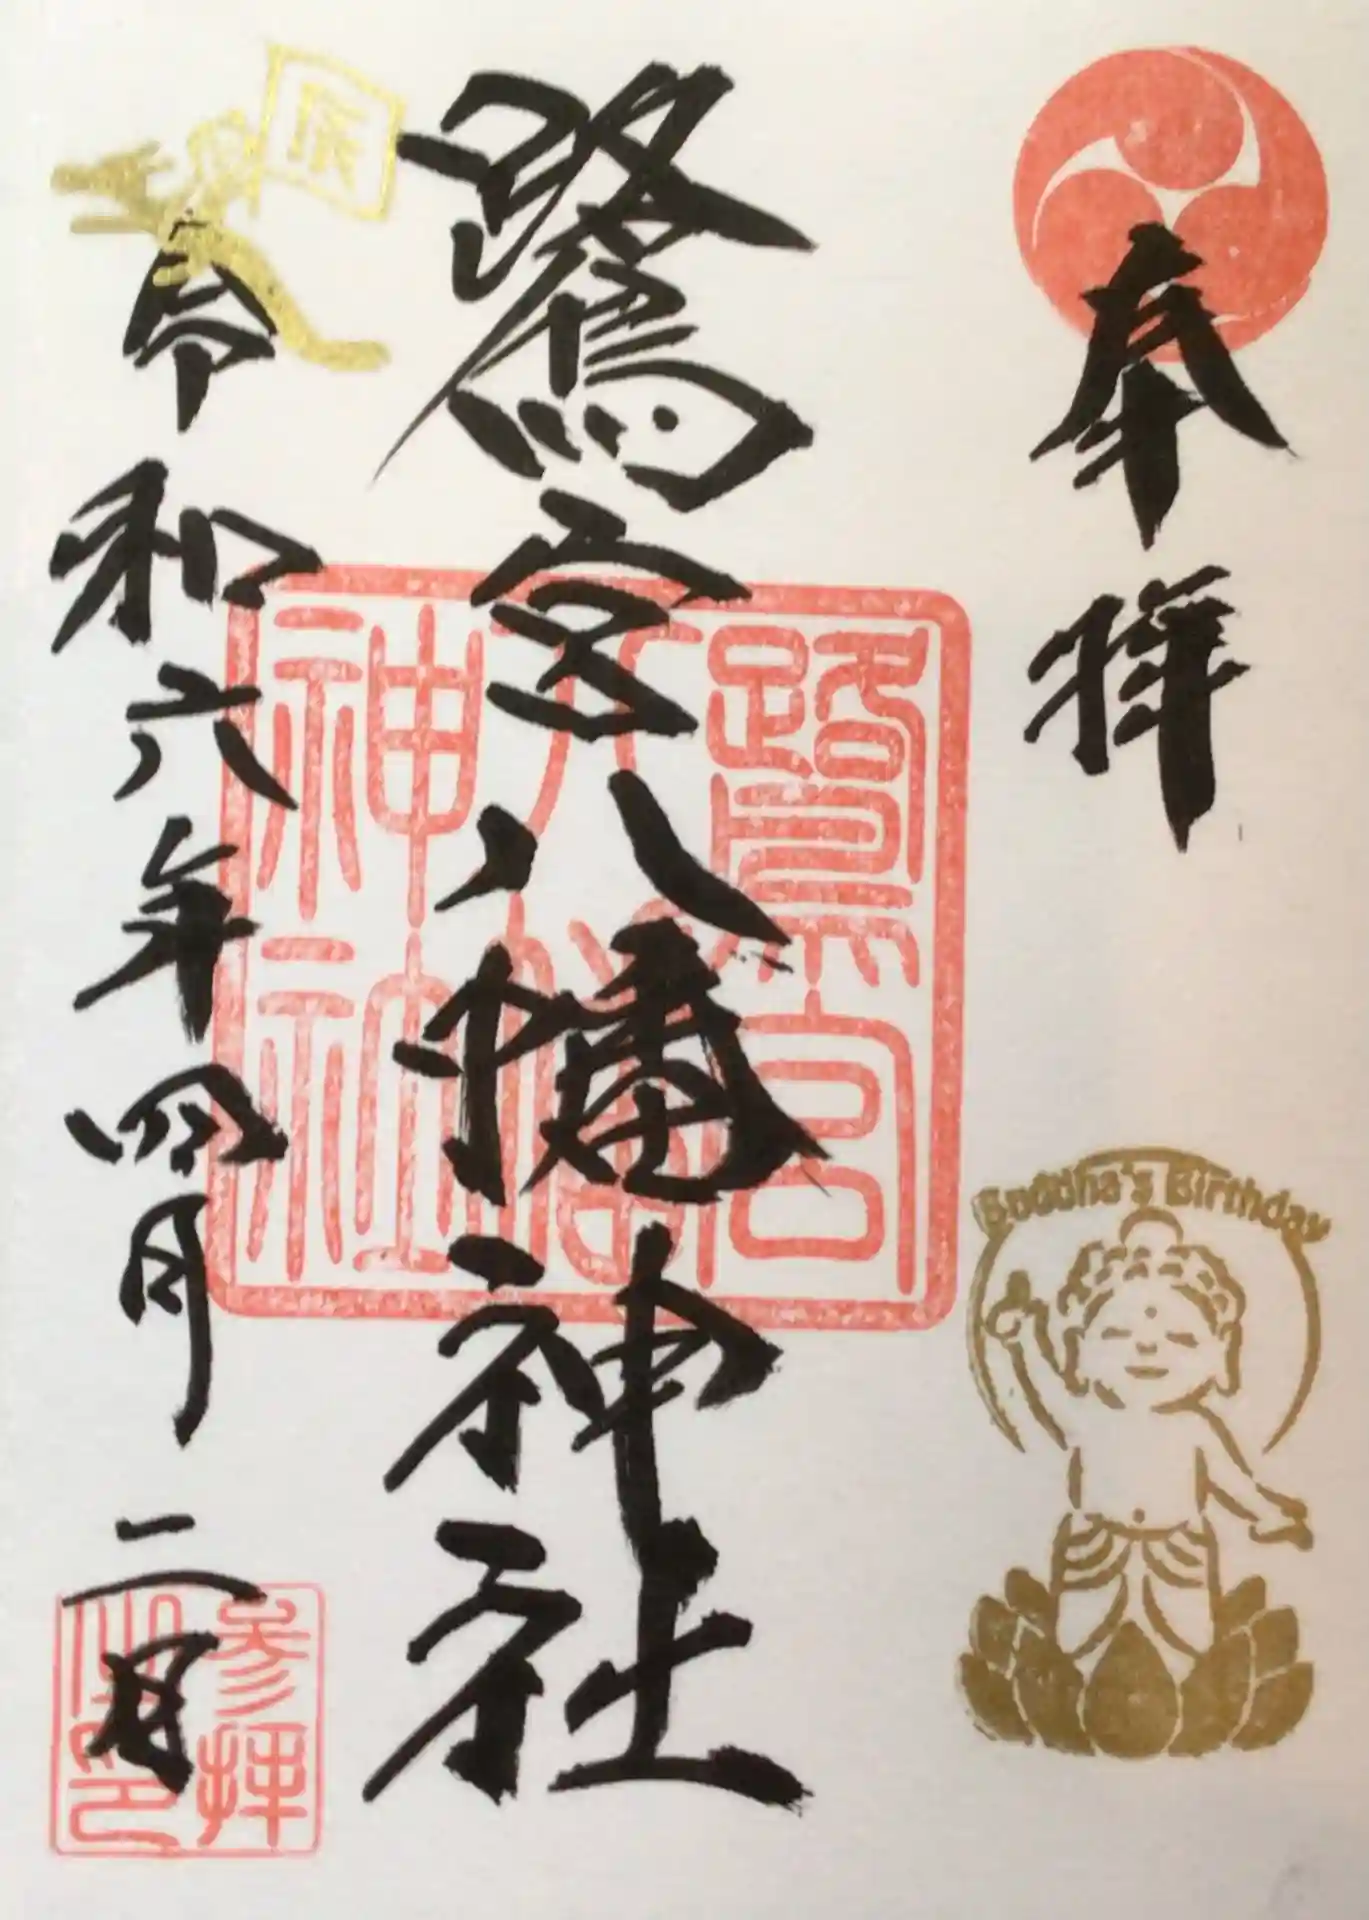 奉拝
Buddha's Birthday
鷺宮八幡神社
鷺宮八幡神社
辰
令和六年四月二日
参拝